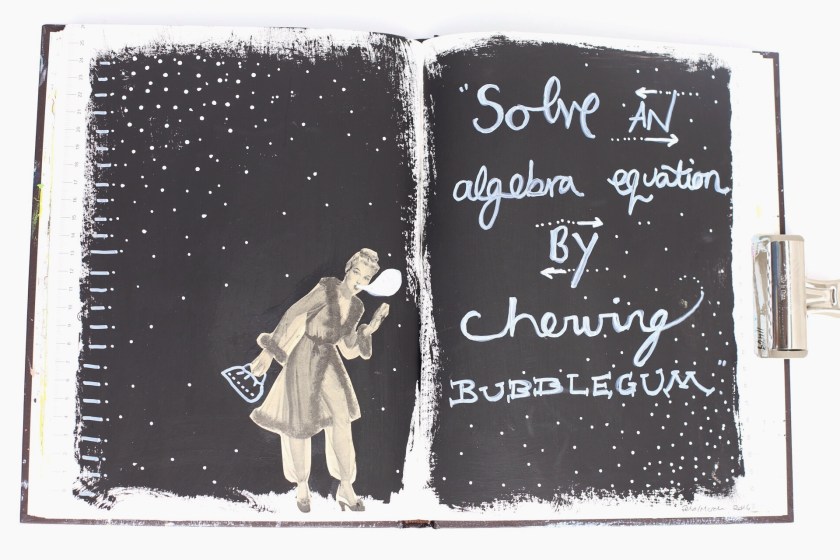 "Solve AN
algebra equation
BY
chewing
BUBBLEGUM"